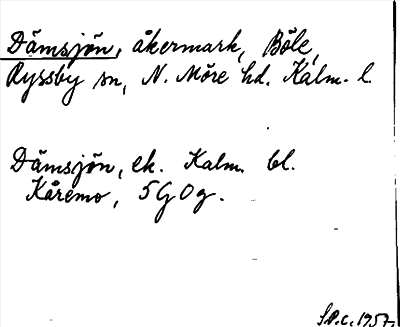 Dämsjön, åkermark, Böle,
Ryssby sn, N. Möre hd. Kalm. l.
Dämsjön, ek. Kalm. bl.
Kåremo, 5G0g.
1957.